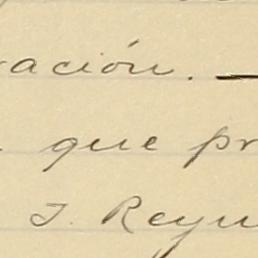 ación. —
que pr
J. Reyn